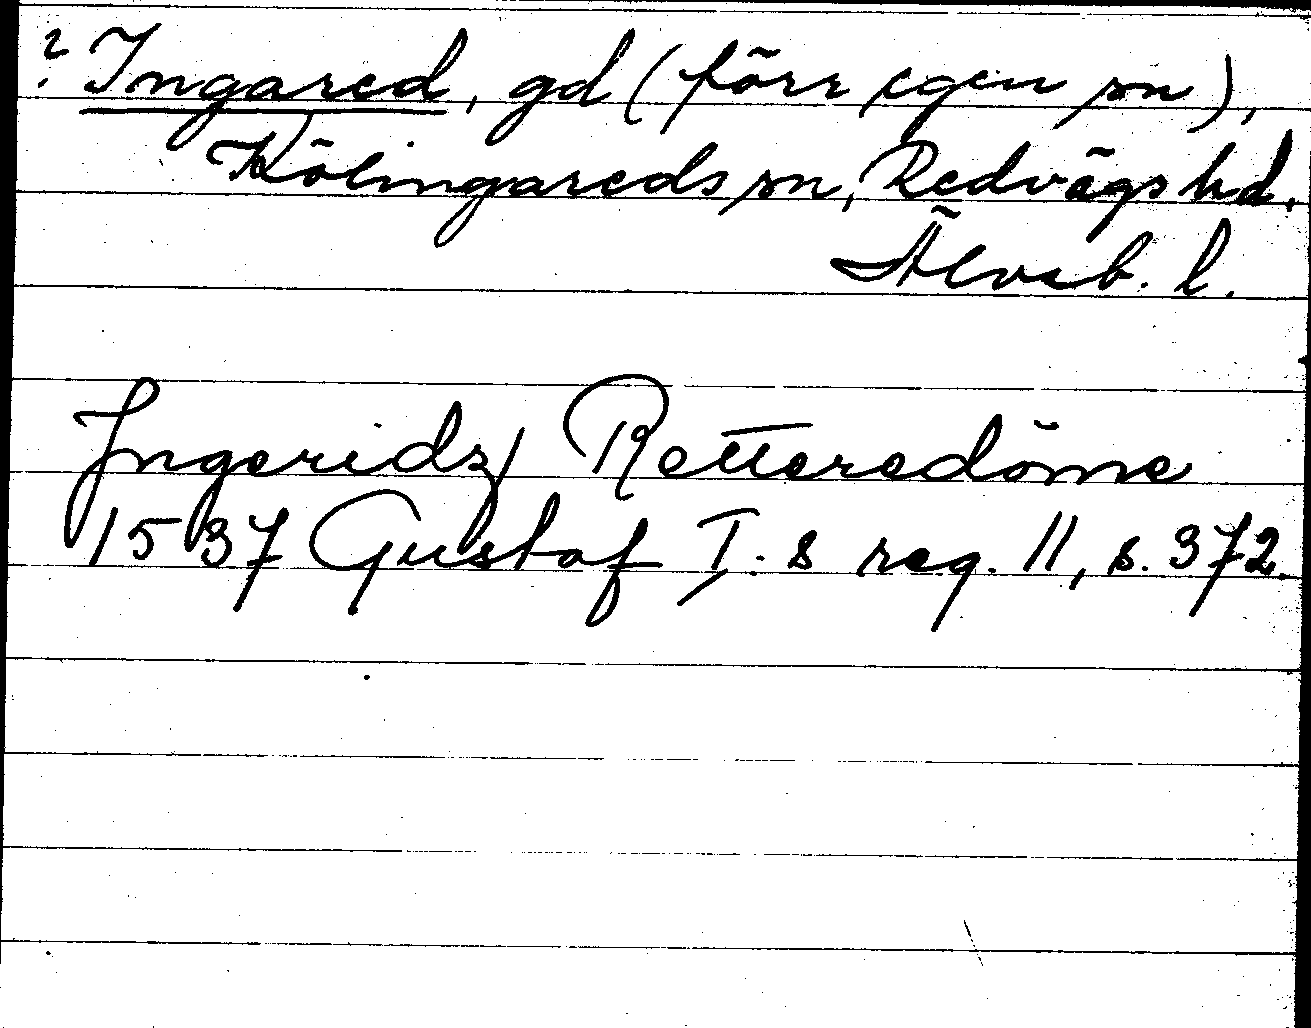 ? Ingared, gd (förr egen sn),
Kölingareds sn, Redvägs hd.
Älvsb. l.
Ingeridz/ Retteredöme
1537 Gustaf I.s reg. 11, s. 372.